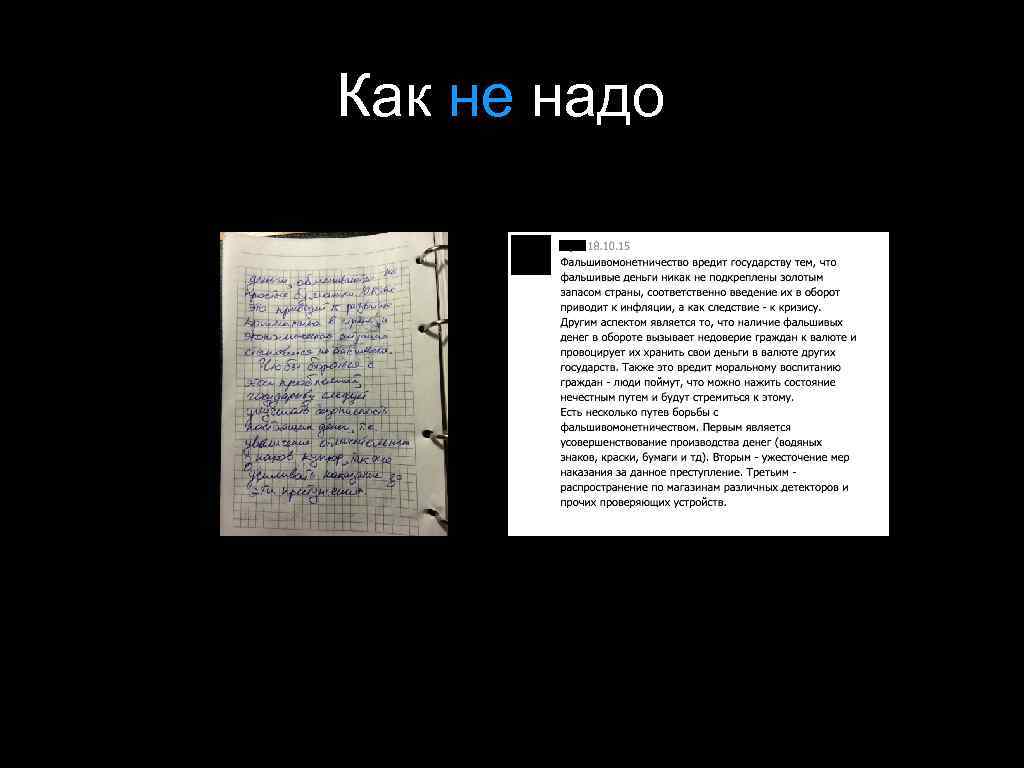 Как не надо
деньги, обменивать на
простые бумажки. Также
это приводит к развитию
криминала в стране, и
экономическая ситуация
становится нестабильна.
Чтобы бороться с
этой проблемой,
государству следует
улучшать безопасность
настоящих денег, т.е.
увеличение отличительных
знаков купюр, также
усиливать наказание за
эти преступления.
18.10.15
Фальшивомонетничество вредит государству тем, что
фальшивые деньги никак не подкреплены золотым
запасом страны, соответственно введение их в оборот
приводит к инфляции, а как следствие - к кризису.
Другим аспектом является то, что наличие фальшивых
денег в обороте вызывает недоверие граждан к валюте и
провоцирует их хранить свои деньги в валюте других
государств. Также это вредит моральному воспитанию
граждан - люди поймут, что можно нажить состояние
нечестным путем и будут стремиться к этому.
Есть несколько путев борьбы с
фальшивомонетничеством. Первым является
усовершенствование производства денег (водяных
знаков, краски, бумаги и тд). Вторым - ужесточение мер
наказания за данное преступление. Третьим -
распространение по магазинам различных детекторов и
прочих проверяющих устройств.